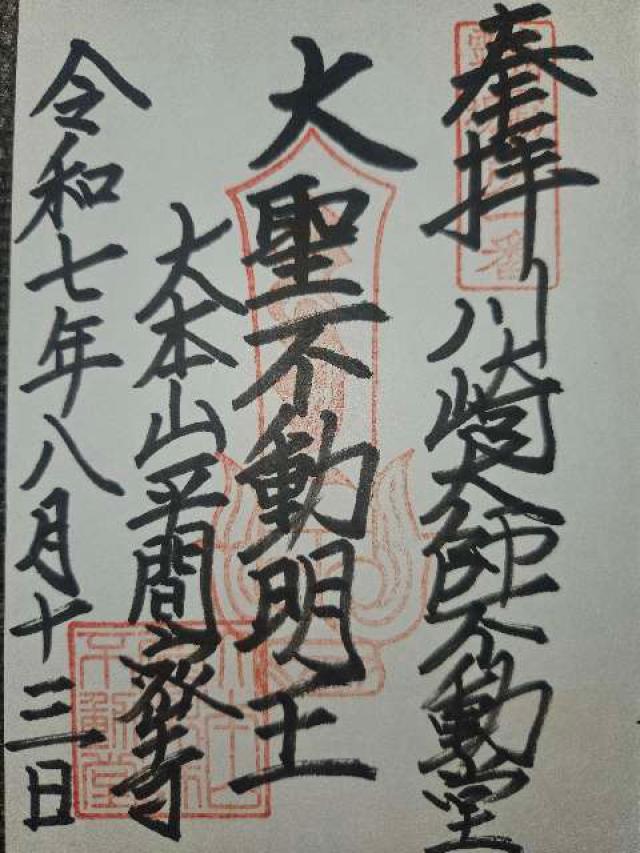 奉拝
川崎大師不動堂
大聖不動明王
大本山平間寺
令和七年八月十三日